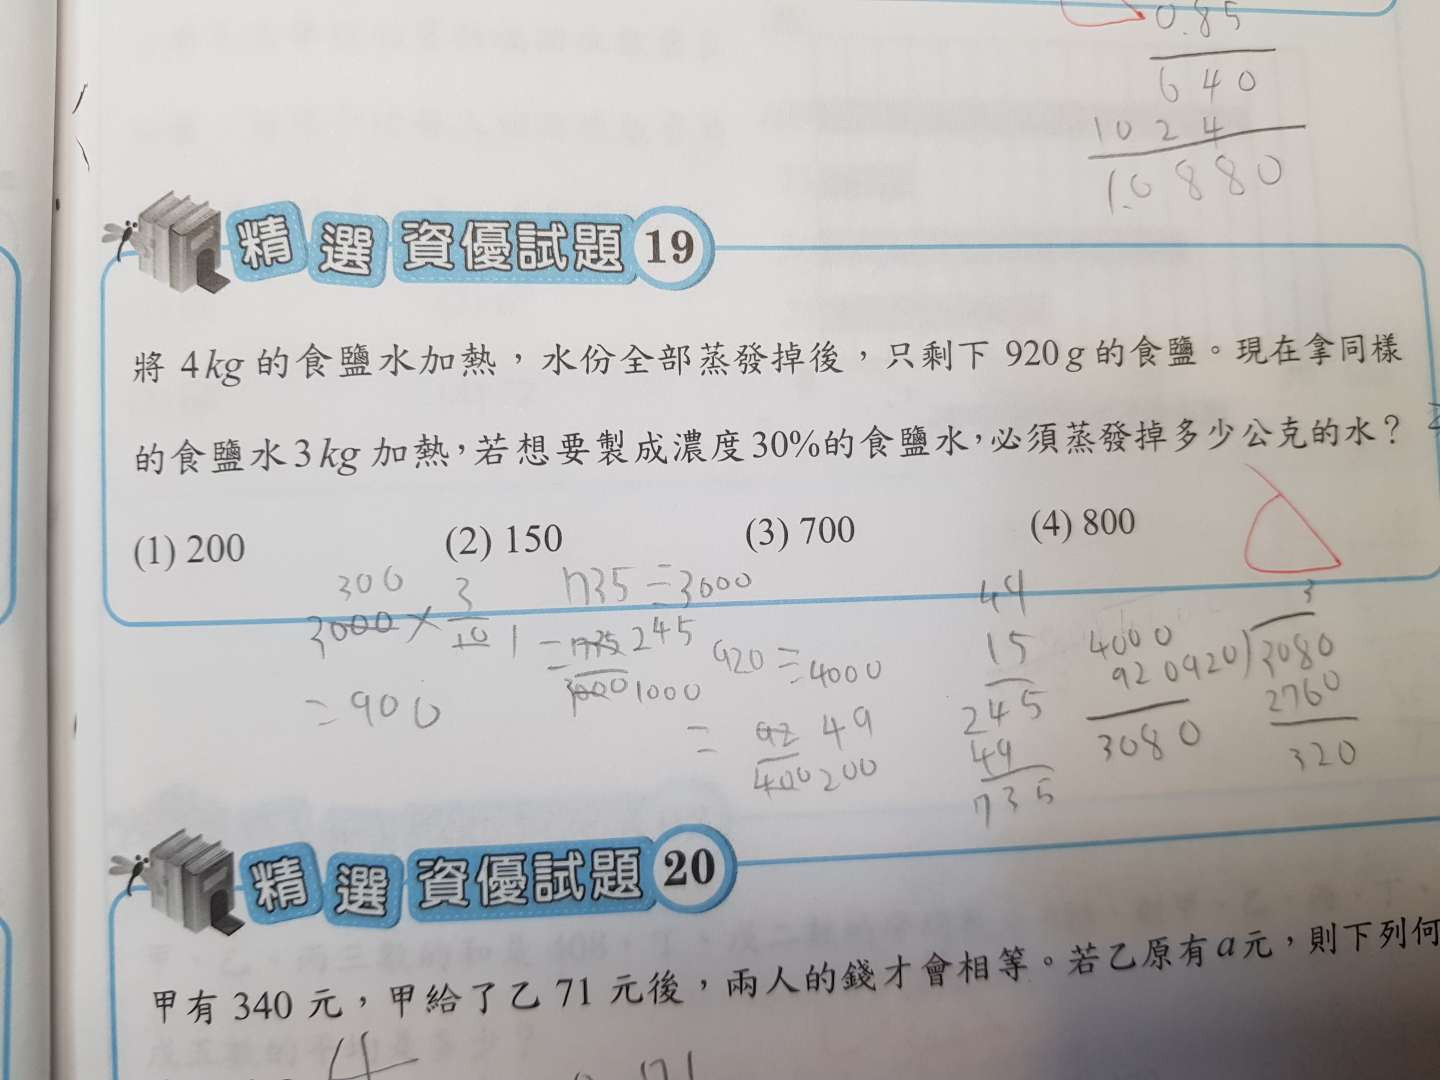 0.85
640
1024
1.0880
精選資優試題 19
將 4kg 的食鹽水加熱，水份全部蒸發掉後，只剩下 920g 的食鹽。現在拿同樣
的食鹽水3kg 加熱，若想要製成濃度30%的食鹽水，必須蒸發掉多少公克的水？
(1) 200 (2) 150 (3) 700 (4) 800
300
3000 × 3/10
= 900
735 ÷ 3000
245
1000
920 ÷ 4000
= 92 49
400 200
49
15
245
49
735
4000
920
3080
3
920)3080
2760
320
精選資優試題 20
甲有 340 元，甲給了乙 71 元後，兩人的錢才會相等。若乙原有a元，則下列何